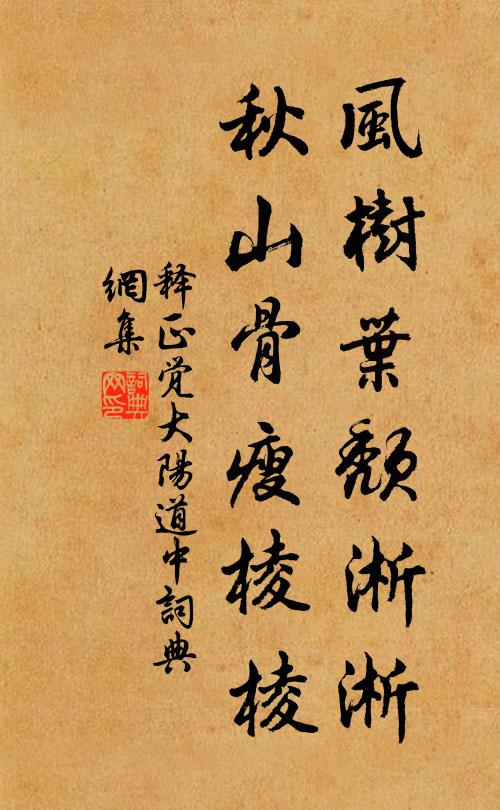 風樹葉頹淅淅
秋山骨瘦棱棱
释正觉大陽道中詞典
網集
詞典
网印